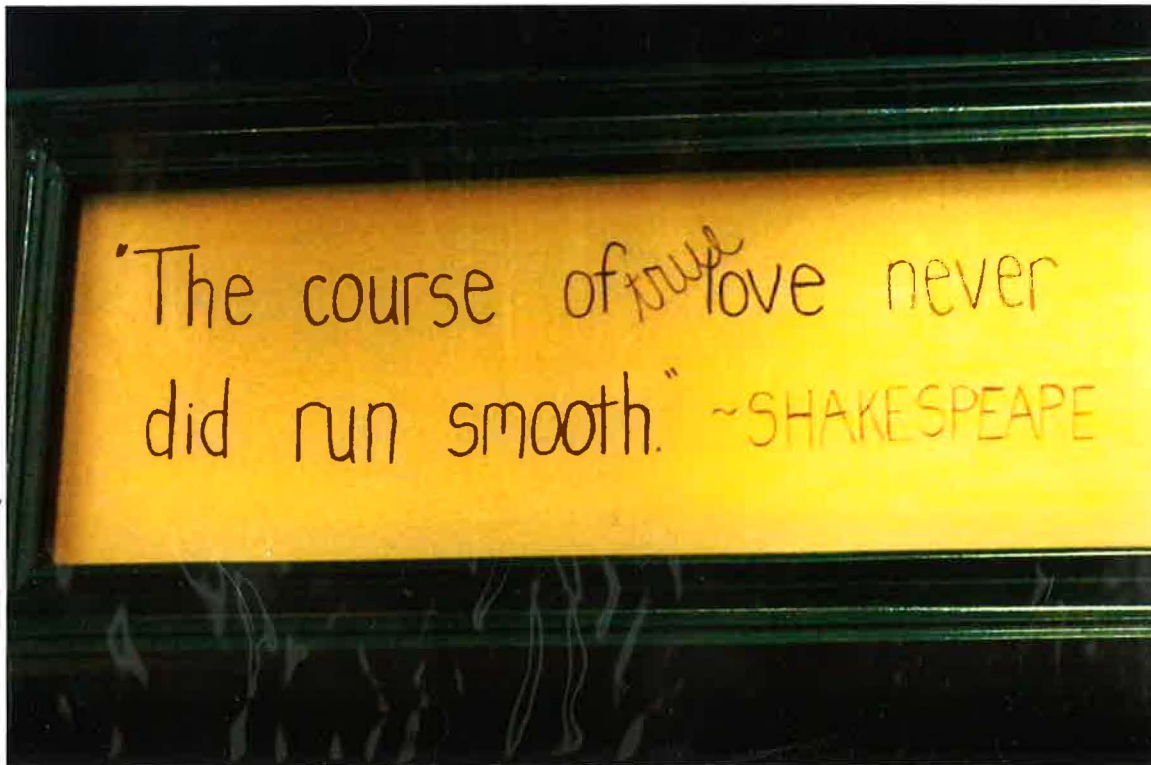 "The course of true love never
did run smooth." ~SHAKESPEAPE